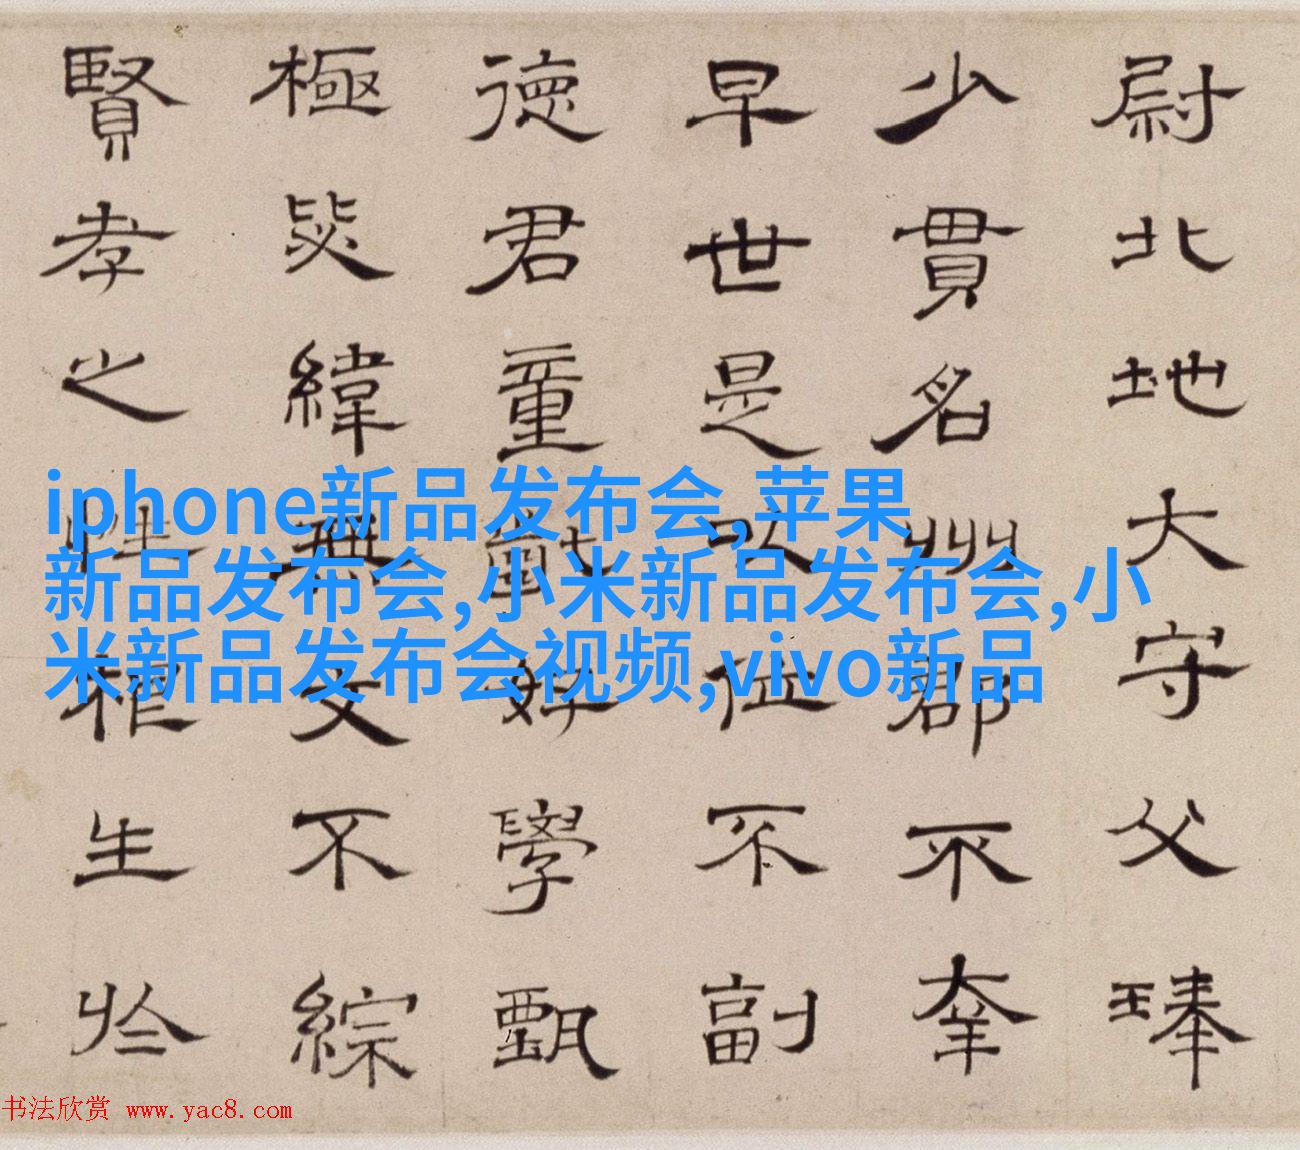 尉北地大守父琫
少貫名州郡不幸
早世是以位不副
德君童齔好學甄
極毖緯無文不綜
賢孝之性根生於
iphone新品发布会,苹果
新品发布会,小米新品发布会,小
米新品发布会视频,vivo新品
书法欣赏 www.yac8.com